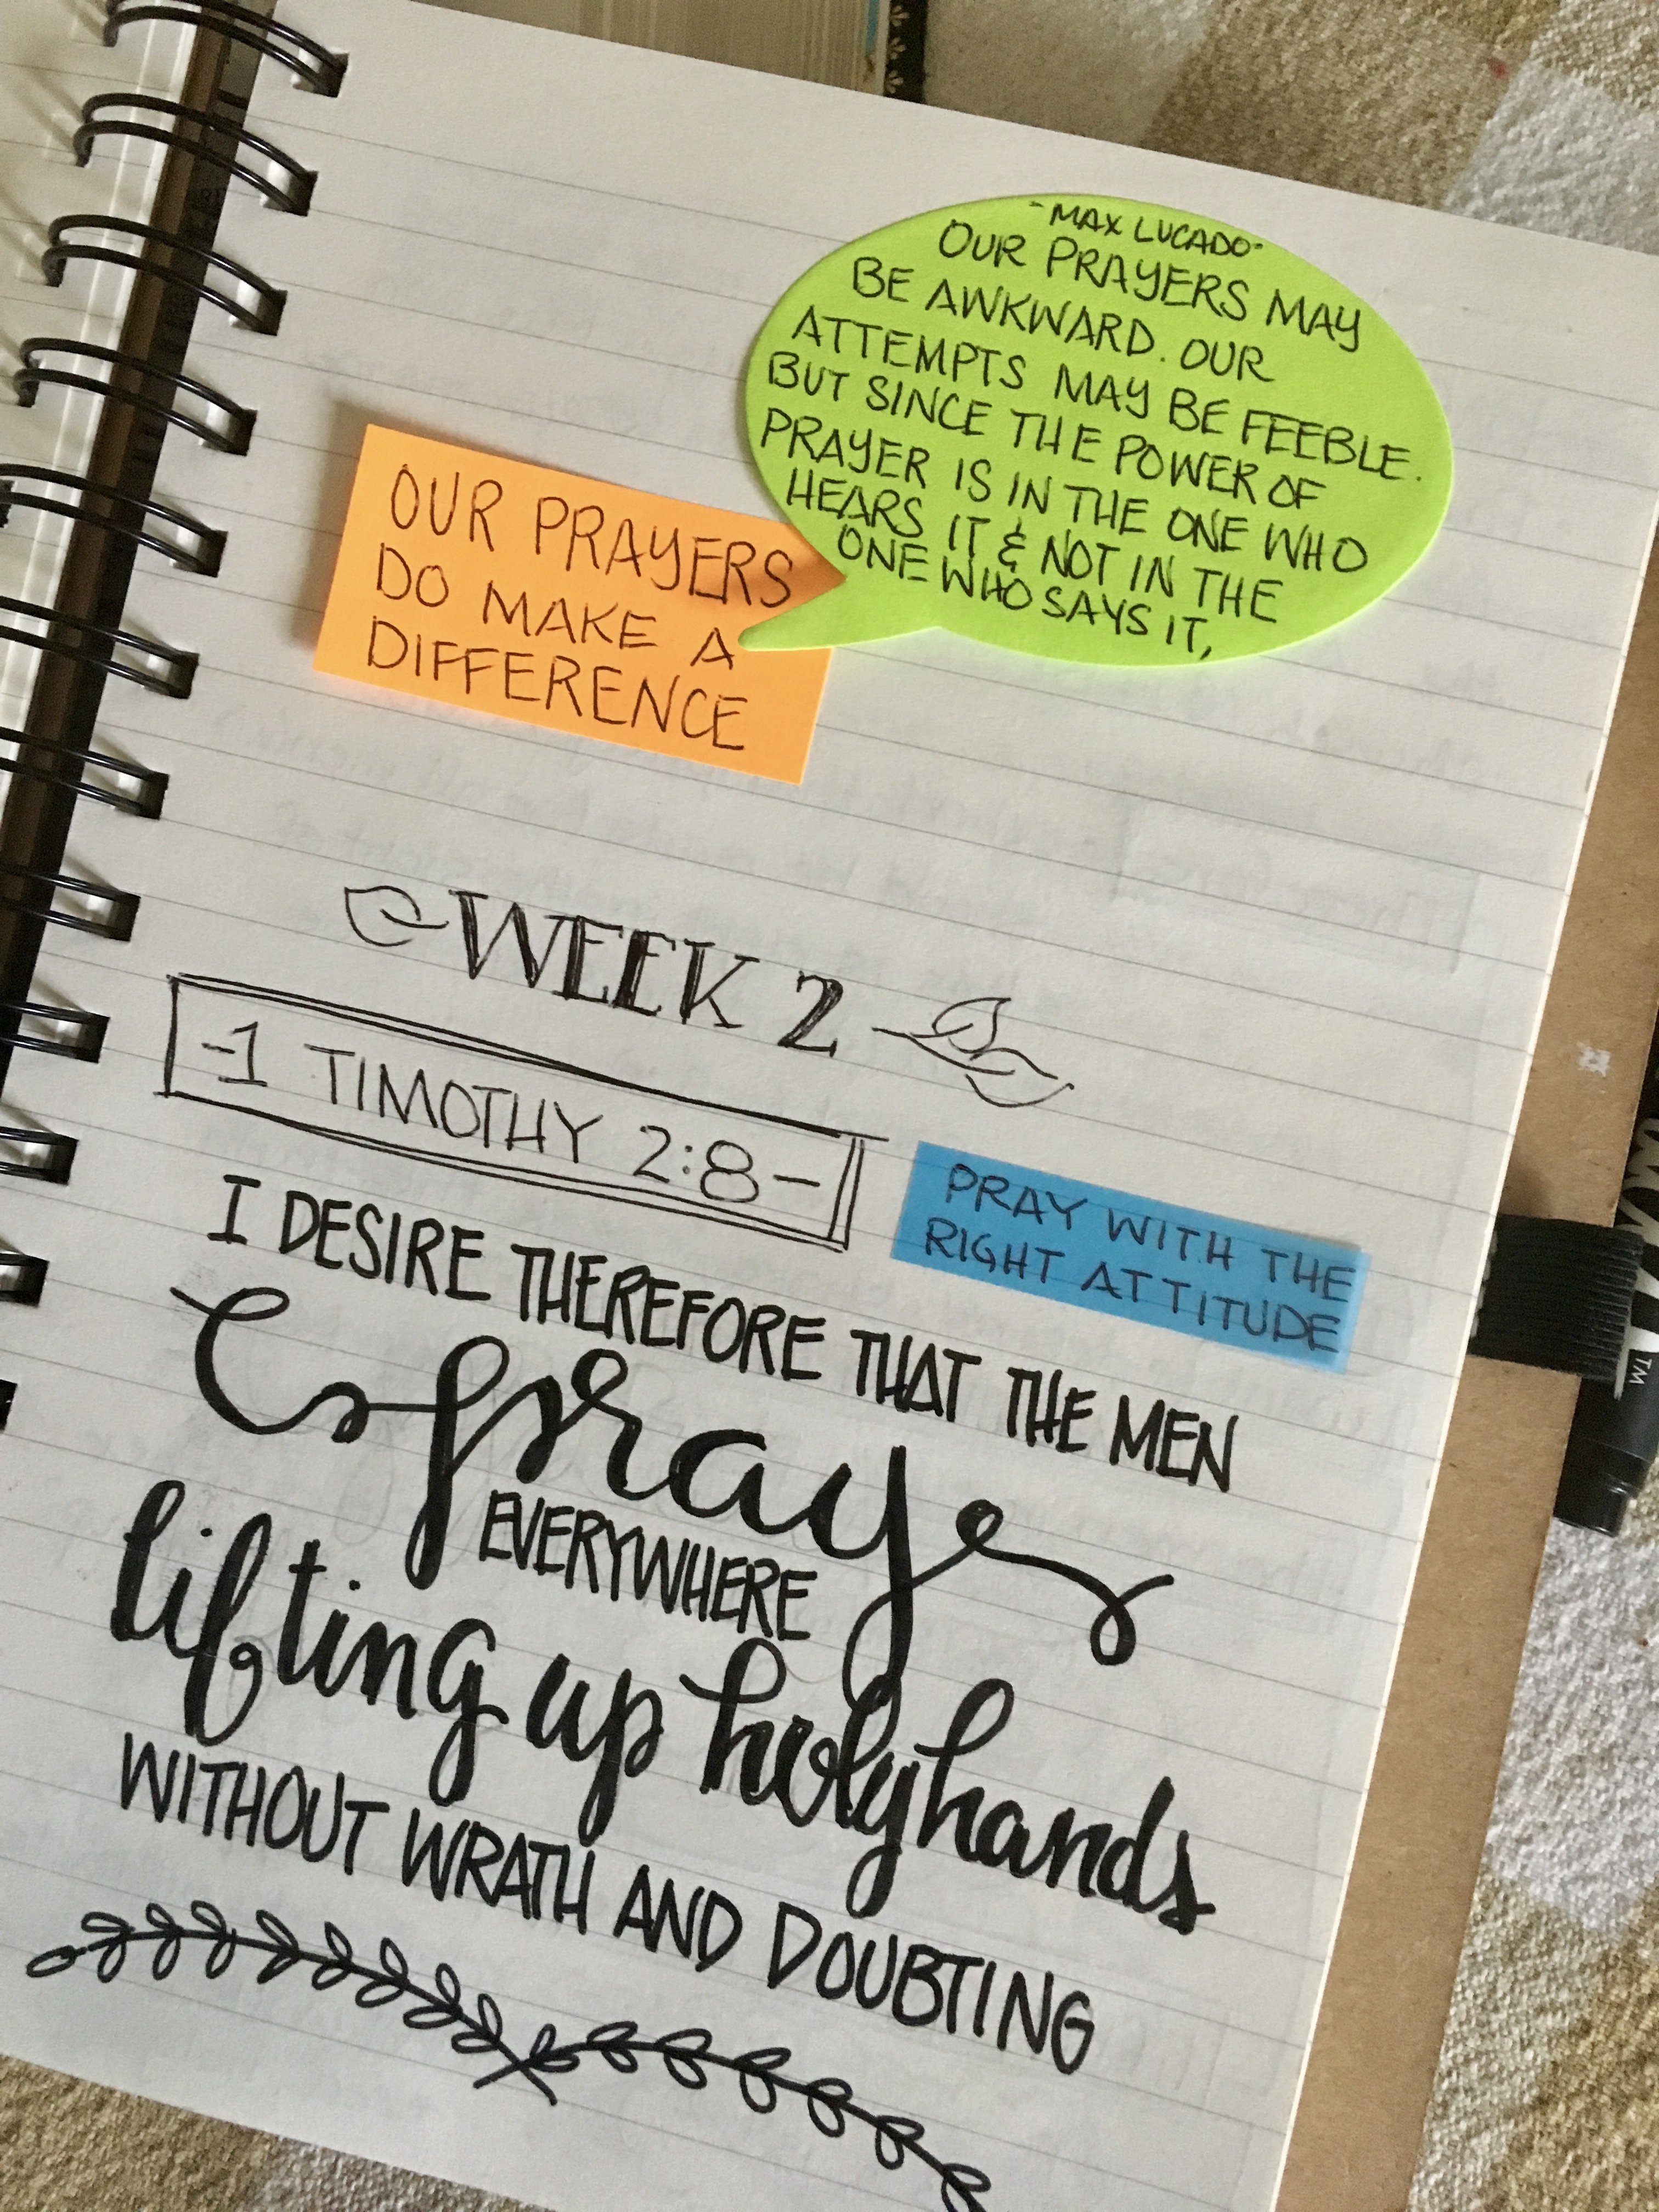 -MAX LUCADO-
OUR PRAYERS MAY
BE AWKWARD. OUR
ATTEMPTS MAY BE FEEBLE.
BUT SINCE THE POWER OF
PRAYER IS IN THE ONE WHO
HEARS IT & NOT IN THE
ONE WHO SAYS IT,
OUR PRAYERS
DO MAKE A
DIFFERENCE
WEEK 2
-1 TIMOTHY 2:8-
PRAY WITH THE
RIGHT ATTITUDE
I DESIRE THEREFORE THAT THE MEN
pray
EVERYWHERE
lifting up holy hands
WITHOUT WRATH AND DOUBTING
TM